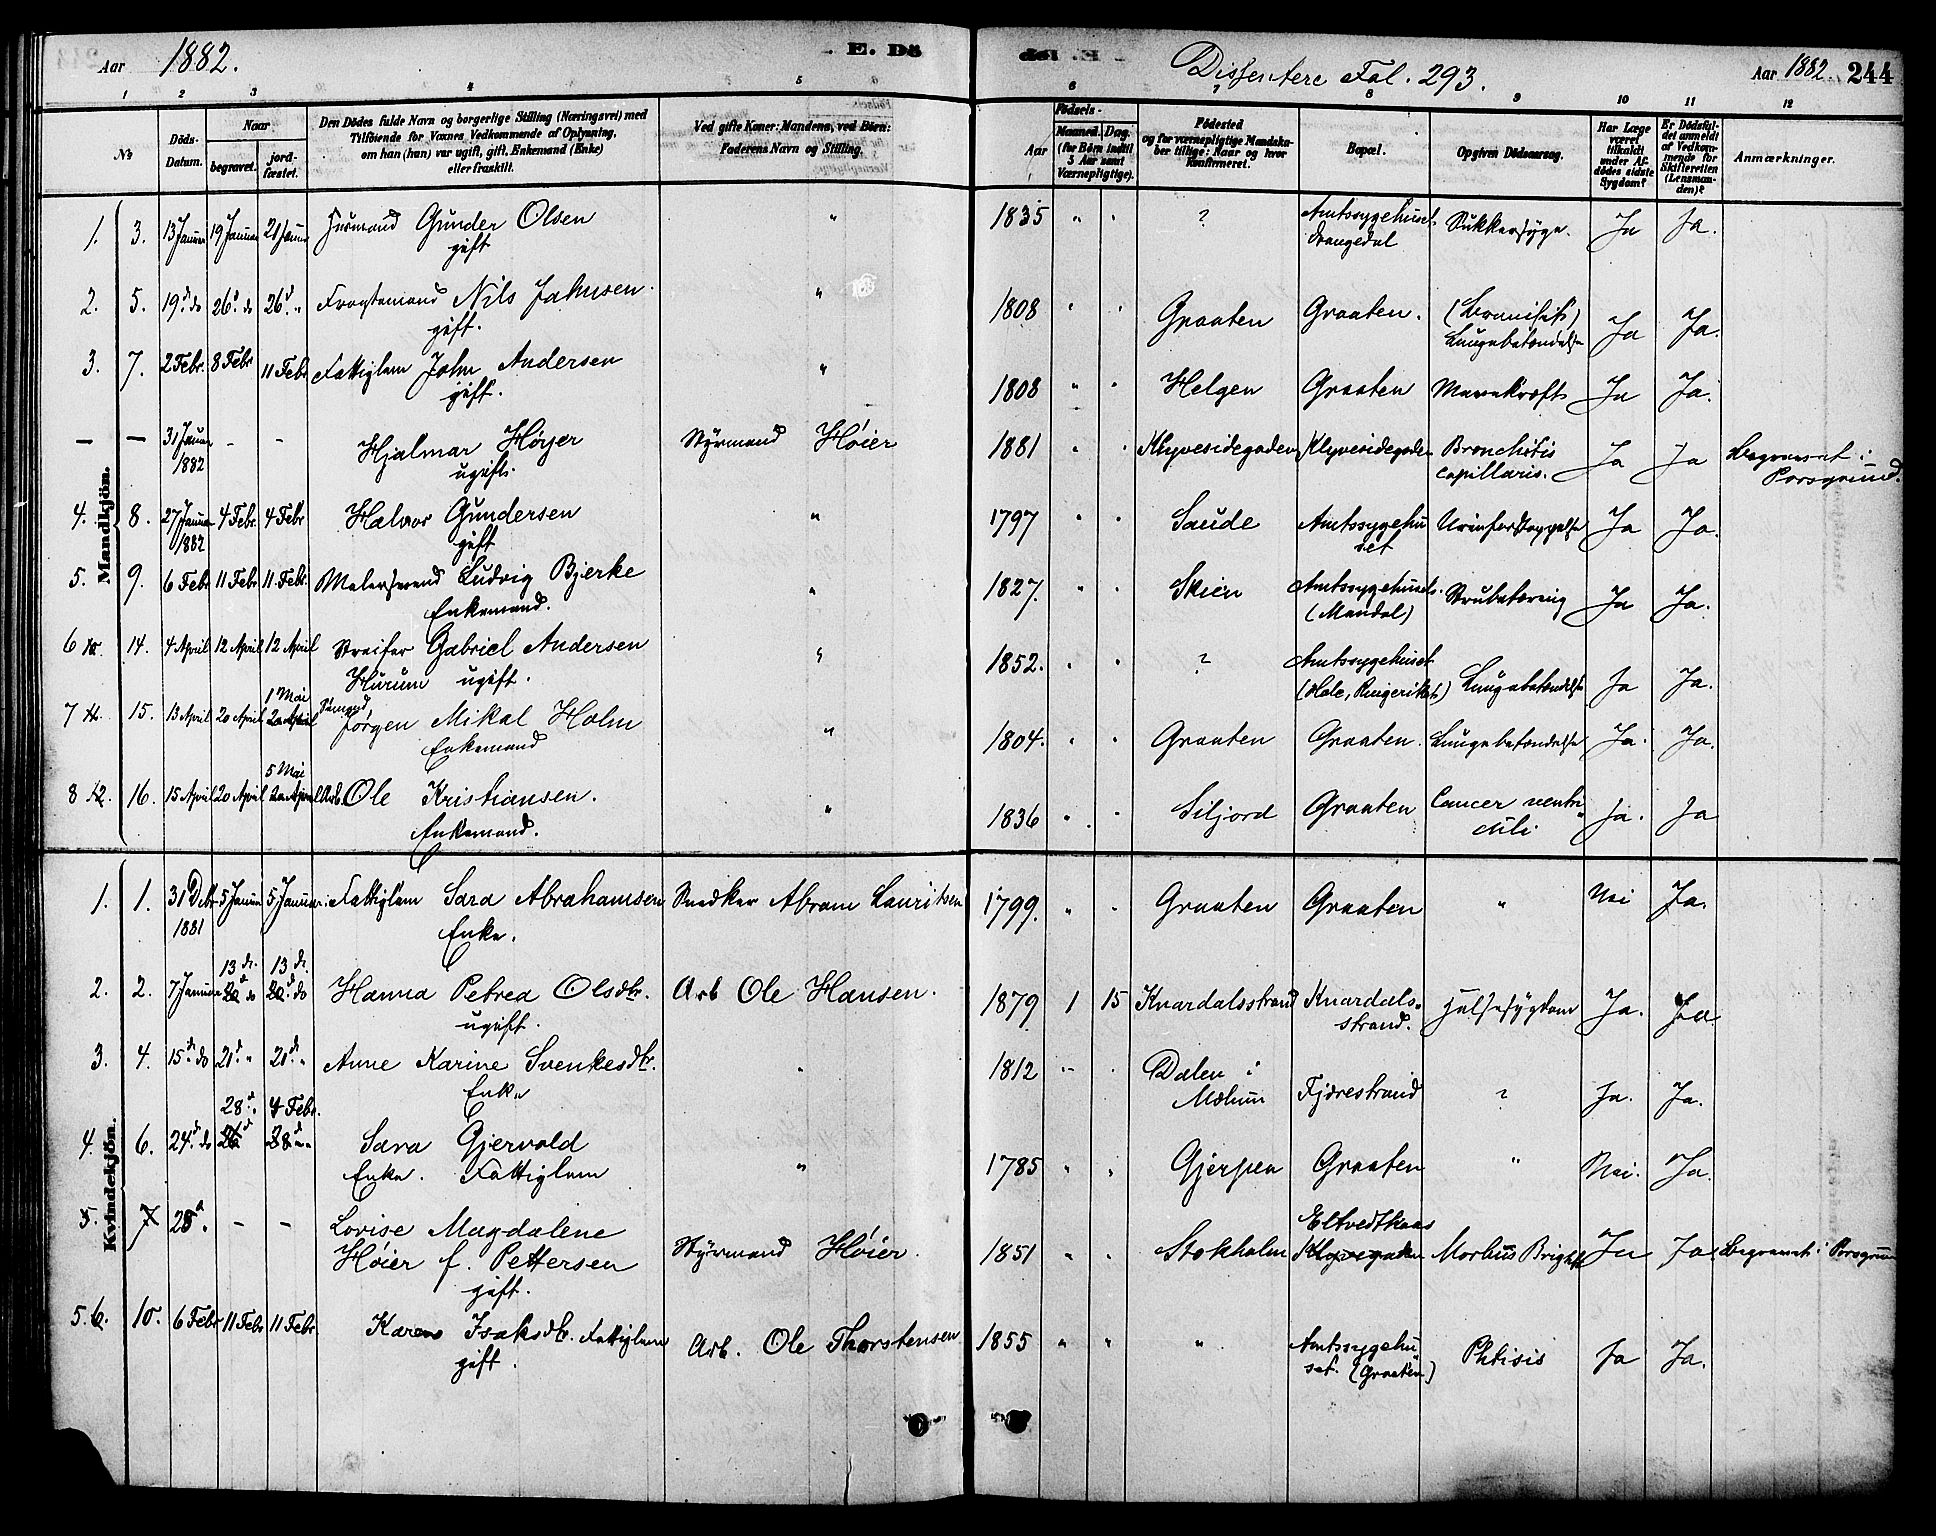 Aar 1882. E. Dö
döl .E Dissentere Fol. 293. Aar 1882. 244
1 2 3 4 5 6 7 8 9 10 11 12
No Döds-Datum. Naar begravet. jordfæstet. Den Dödes fulde Navn og borgerlige Stilling (Næringsvei) med
Tilföiende for Voxnes Vedkommende af Oplysning,
om han (hun) var ugift, gift, Enkemand (Enke)
eller fraskilt.
Ved gifte Koner: Mandens, ved Börn:
Faderens Navn og Stilling.
Födsels-
Aar Maaned. Dag.
(for Börn indtil
5 Aar samt
Værnepligtige).
Födested
og for værnepligtige Mandska-
ber tillige: Naar og hvor
Konfirmeret.
Bopæl.
Opgiven Dödsaarsag.
Har Læge
været
tilkaldt
under Af-
dödes sidste
Sygdom?
Er Dödsfal-
det anmeldt
af Vedkom-
mende for
Skifteretten
(Lensman-
den)?
Anmærkninger.
Mandkjön.
1. 3. 13 Januar 19 Januar 21 Januar Husmand Gunder Olsen " 1835 " " ? Amtssygehuset. Sukkersyge. Ja Ja.
gift Drangedal
2. 5. 19d do 26d do 26d " Fragtemand Nils Jahnsen " 1808 " " Graaten Graaten. Ja Ja.
gift. Lungebetændelse
3. 7. 2 Febr. 8 Febr 11 Febr Fattiglem John Andersen " 1808 " " Helgen Graaten Mavekræft Ja Ja.
gift.
— — 31 Januar - - Hjalmar Höyer Styrmand Höier 1881 " " Klyvesidegaden Klyvesidegaden Bronchitis Ja Ja Begravet i
1882 ugift. capillaris. Porsgrund.
4. 8. 27 Januar 4 Febr. 4 Febr Halvor Gundersen " 1797 " " Saude Amtssygehu Ja Ja.
1882 gift set
5. 9. 6 Febr 11 Febr 11 Febr. Malersvend Ludvig Bjerke " 1827. " " Skien Amtssygehuset. Strubetæring Ja Ja.
Enkemand. (Mandal)
6 14. 4 April 12 April 12 April Gabriel Andersen " 1852. " " ? Amtssygehuset Lungebetændelse Ja Ja.
Hurum ugift. (Hole, Ringeriket)
7 15. 13 April 20 April 1 Mai 20 April Jörgen Mikal Holm " 1804. " " Graaten Graaten. Lungebetændelse Ja. Ja.
Enkemand
8 12. 16. 15 April 20 April 5 Mai 20 April Arb. Ole Kristiansen. " 1836 " " Siljord Graaten Cancer ventri Ja. Ja
Enkemand. culi
Kvindekjön.
1. 1. 31 Dcbr 5 Januar 5 Januar. Fattiglem Sara Abrahamsen Snedker Abram Lauritsen 1799. " " Graaten Graaten " Nei Ja.
1881 Enke.
13 do. 13 do.
2. 2. 7 Januar 20d do 20d do Hanna Petrea Olsdtr. Arb Ole Hansen. 1879 1 15 Knardalsstrand Knardals- Halsesygdom Ja. Ja
ugift. strand.
3. 4. 15d do 21d " 21d " Anne Karine Svenkesdtr. " 1812 " " Dalen i Fjærestrand ? Ja. Ja.
Enke Mælum
28d. 4 Febr.
4. 6. 24d do 26d 28d " Sara Gjervold " 1785 " " Gjerpen Graaten " Nei. Ja.
Enke. Fattiglem
5. 7 28d. - - Lovise Magdalene Eltvedtkaas
Höier f. Pettersen Styrmand Höier. 1851 " " Stokholm Klyvegaden Morbus Brightii Ja Ja. Begravet i Porsgrun
gift.
5. 6. 10. 6 Febr 11 Febr 11 Febr. Karen Isaksdtr. Fattiglem Arb. Ole Thorstensen 1855 " " " Amtssygehu Phtisis Ja Ja.
gift. set. (Graaten)